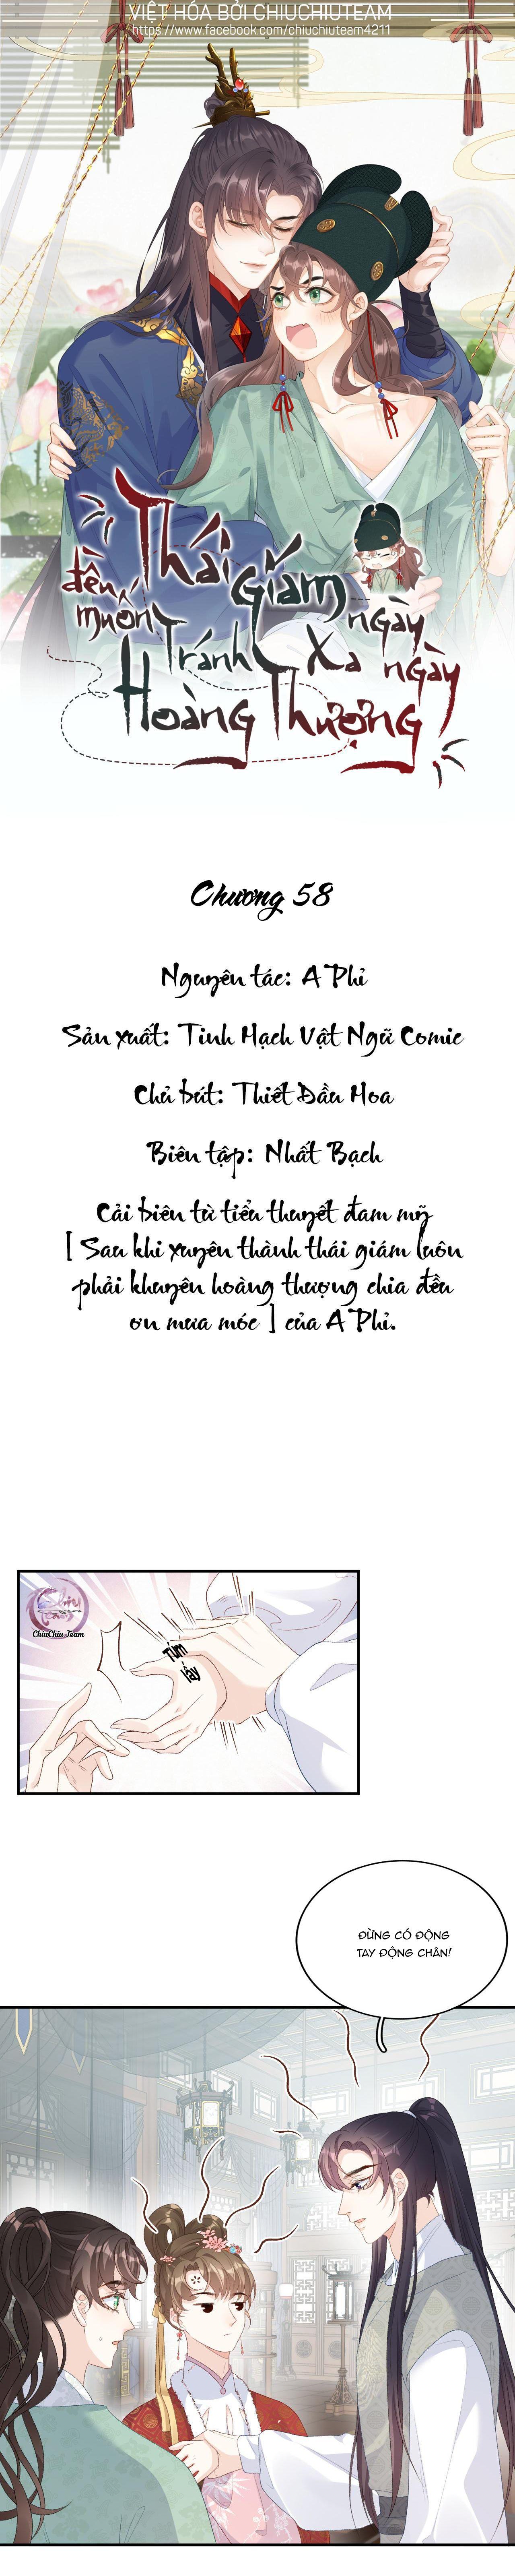 VIỆT HÓA BỞI CHIUCHIUTEAM
https://www.facebook.com/chiuchiuteam4211
Thái Giám ngày
đều muốn Tránh Xa ngày
Hoàng Thượng
Chương 58
Nguyên tác: A Phỉ
Sản xuất: Tinh Mạch Vật Ngữ Comic
Chủ bút: Thiết Đầu Hoa
Biên tập: Nhất Bạch
Cải biên từ tiểu thuyết đam mỹ
[ Sau khi xuyên thành thái giám luôn
phải khuyên hoàng thượng chia đều
ơn mưa móc ] của A Phỉ.
ChiuChiu Team
Túm lấy
ĐỪNG CÓ ĐỘNG
TAY ĐỘNG CHÂN!